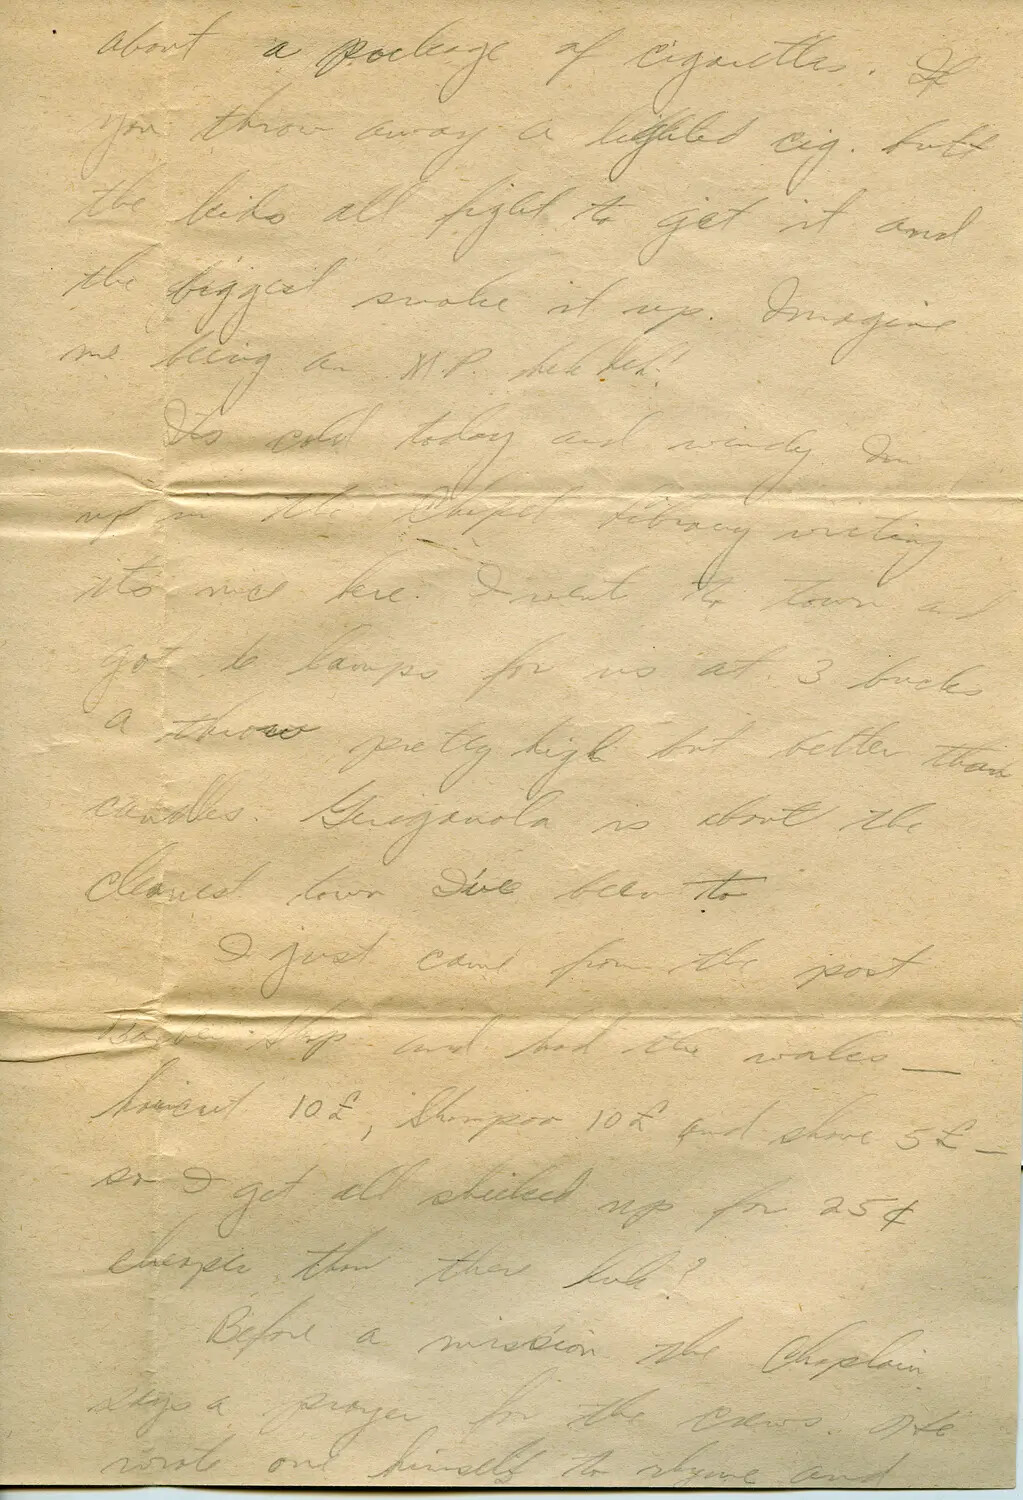 about a package of cigarettes. If
you throw away a lighted cig. butt
the kids all fight to get it and
the biggest smoke it up. Imagine
me being an M.P. heh heh!
Its cold today and windy Im
up in the Chapel Library writing
its nice here. I went to town and
got 6 lamps for us at 3 bucks
a throw pretty high but better than
candles. Gerignola is about the
cleanest town I've been to
I just came from the post
Barber Shop and had the works —
haircut 10£, Shampoo 10£ and shave 5£ —
so I get all slicked up for 25¢
cheaper than there huh?
Before a mission the Chaplain
says a prayer for the crews. He
wrote one himself to rhyme and